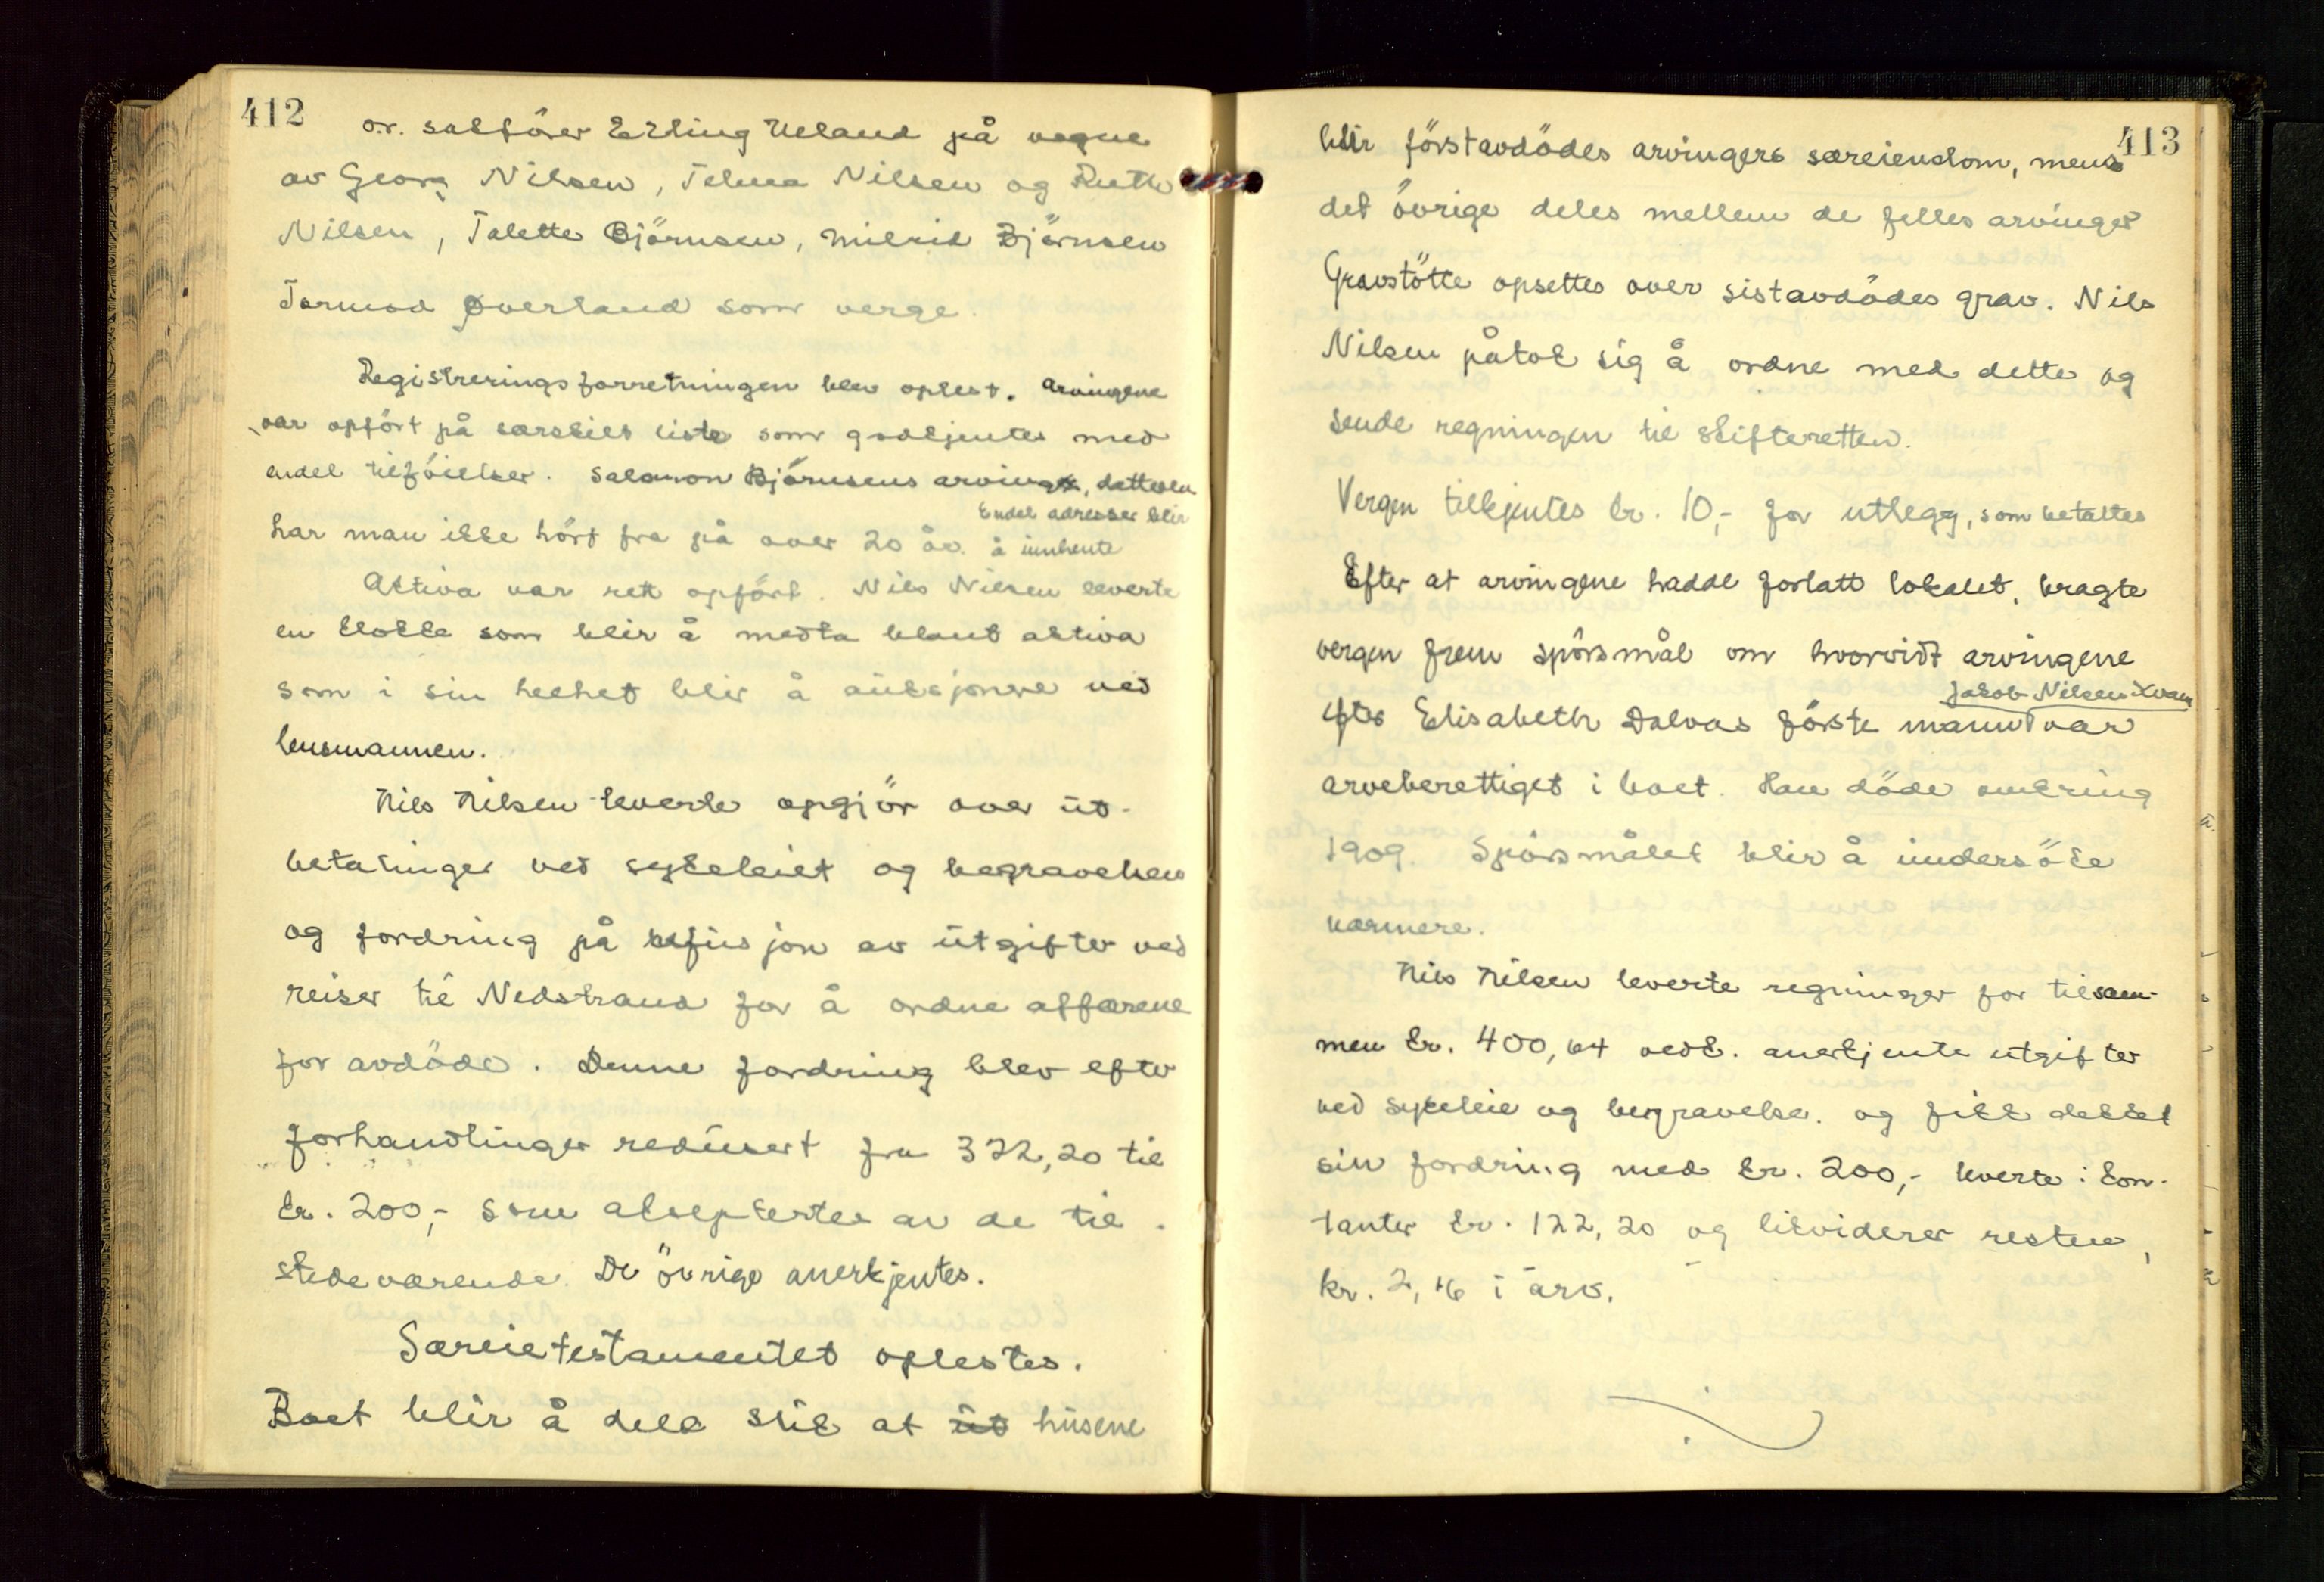 412
o.r. sakförer Erling Ueland på vegne
av Georg Nilsen, Telma Nilsen og Ruth
Nilsen, Talette Björnsen, Milrid Björnsen
Tormod Øverland som verge.
Registreringsforretningen blev oplest. Arvingene
var opfört på særskilt liste som godkjentes med
endel tilföielser. Salamon Björnsens arving, datteren
Endel adresser blir
har man ikke hört fra på over 20 år. å innhente
Aktiva var rett opfört. Nils Nilsen leverte
en klokke som blir å medta blant aktiva
som i sin helhet blir å auksjonere ved
lensmannen.
Nils Nilsen leverte opgjör over ut-
betalinger ved sykeleiet og begravelsen
og fordring på refusjon av utgifter ved
reiser til Nedstrand for å ordne affærene
for avdöde. Denne fordring blev efter
forhandlinger redusert fra 322,20 til
kr. 200,- som aksepteres av de til-
stedeværende. De övrige anerkjentes.
Særeietestamentet oplestes.
Boet blir å dele slik at ut husene
413
blir förstavdödes arvingers særeiendom, mens
det övrige deles mellem de felles arvinger
Gravstötte opsettes over sistavdödes grav. Nils
Nilsen påtok sig å ordne med dette og
sende regningen til skifteretten.
Vergen tilkjentes kr. 10,- for utlegg, som betaltes
Efter at arvingene hadde forlatt lokalet, bragte
vergen frem spörsmål om hvorvidt arvingene
Jakob Nilsen Kvam
efter Elisabeth Dalvas förste mann var
arveberettiget i boet. Han döde omkring
1909. Spörsmålet blir å undersöke
nærmere.
Nils Nilsen leverte regninger for tilsam-
men kr. 400,64 vedk. anerkjente utgifter
ved sykeleie og begravelse. og fikk dekket
sin fordring med kr. 200,- leverte i kon-
tanter kr. 122,20 og likviderer resten,
kr. 2,16 i arv.